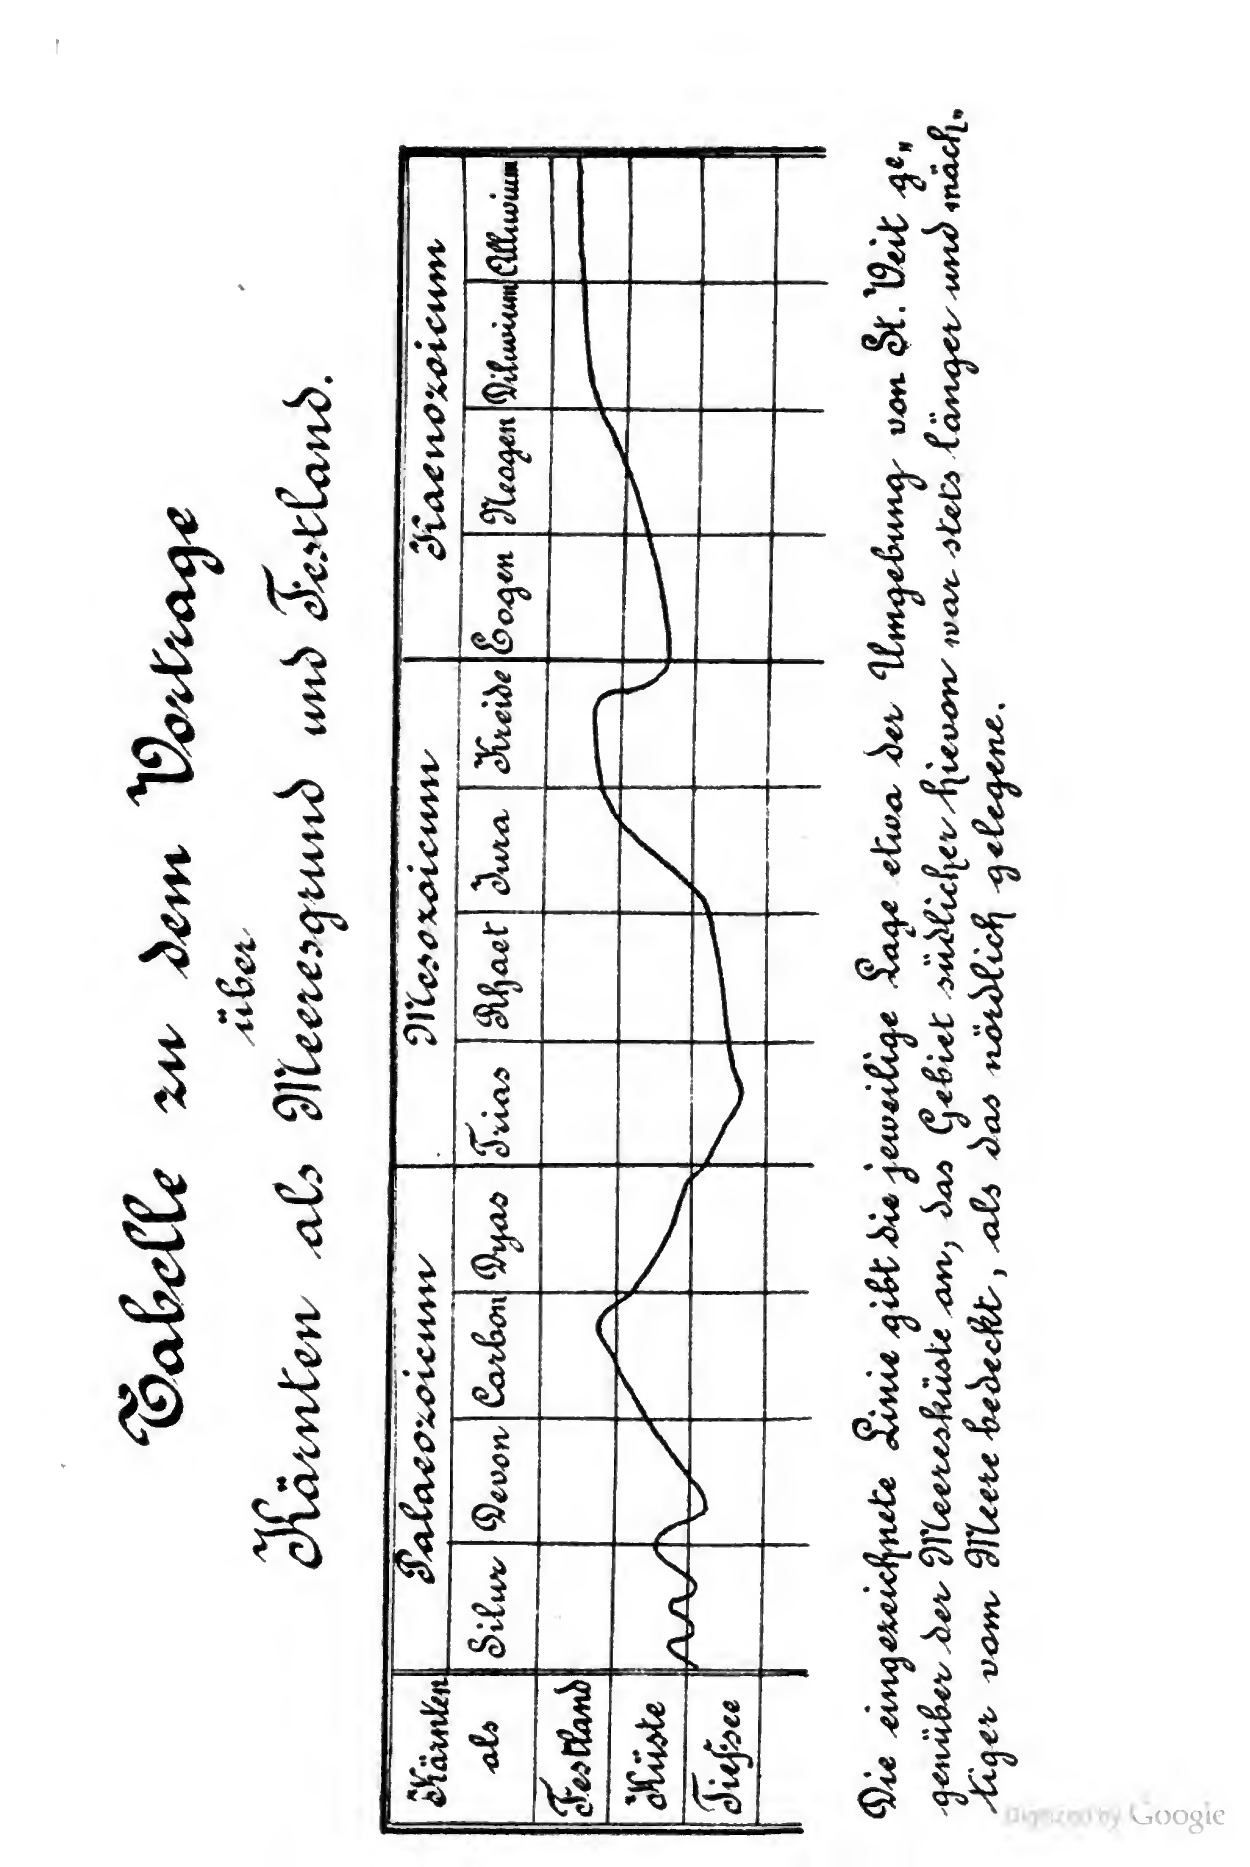 Tabelle zu dem Vortrage
über
Kärnten als Meeresgrund und Festland.
Kärnten Palaeozoicum Mesozoicum Kaenozoicum
als Silur Devon Carbon Dyas Trias Rhaet Jura Kreide Eogen Neogen Diluvium Alluvium
Festland
Küste
Tiefsee
Die eingezeichnete Linie gibt die jeweilige Lage etwa der Umgebung von St. Veit ge„
genüber der Meeresküste an, das Gebiet südlicher hievon war stets länger und mäch„
tiger vom Meere bedeckt, als das nördlich gelegene.
Digitized by Google